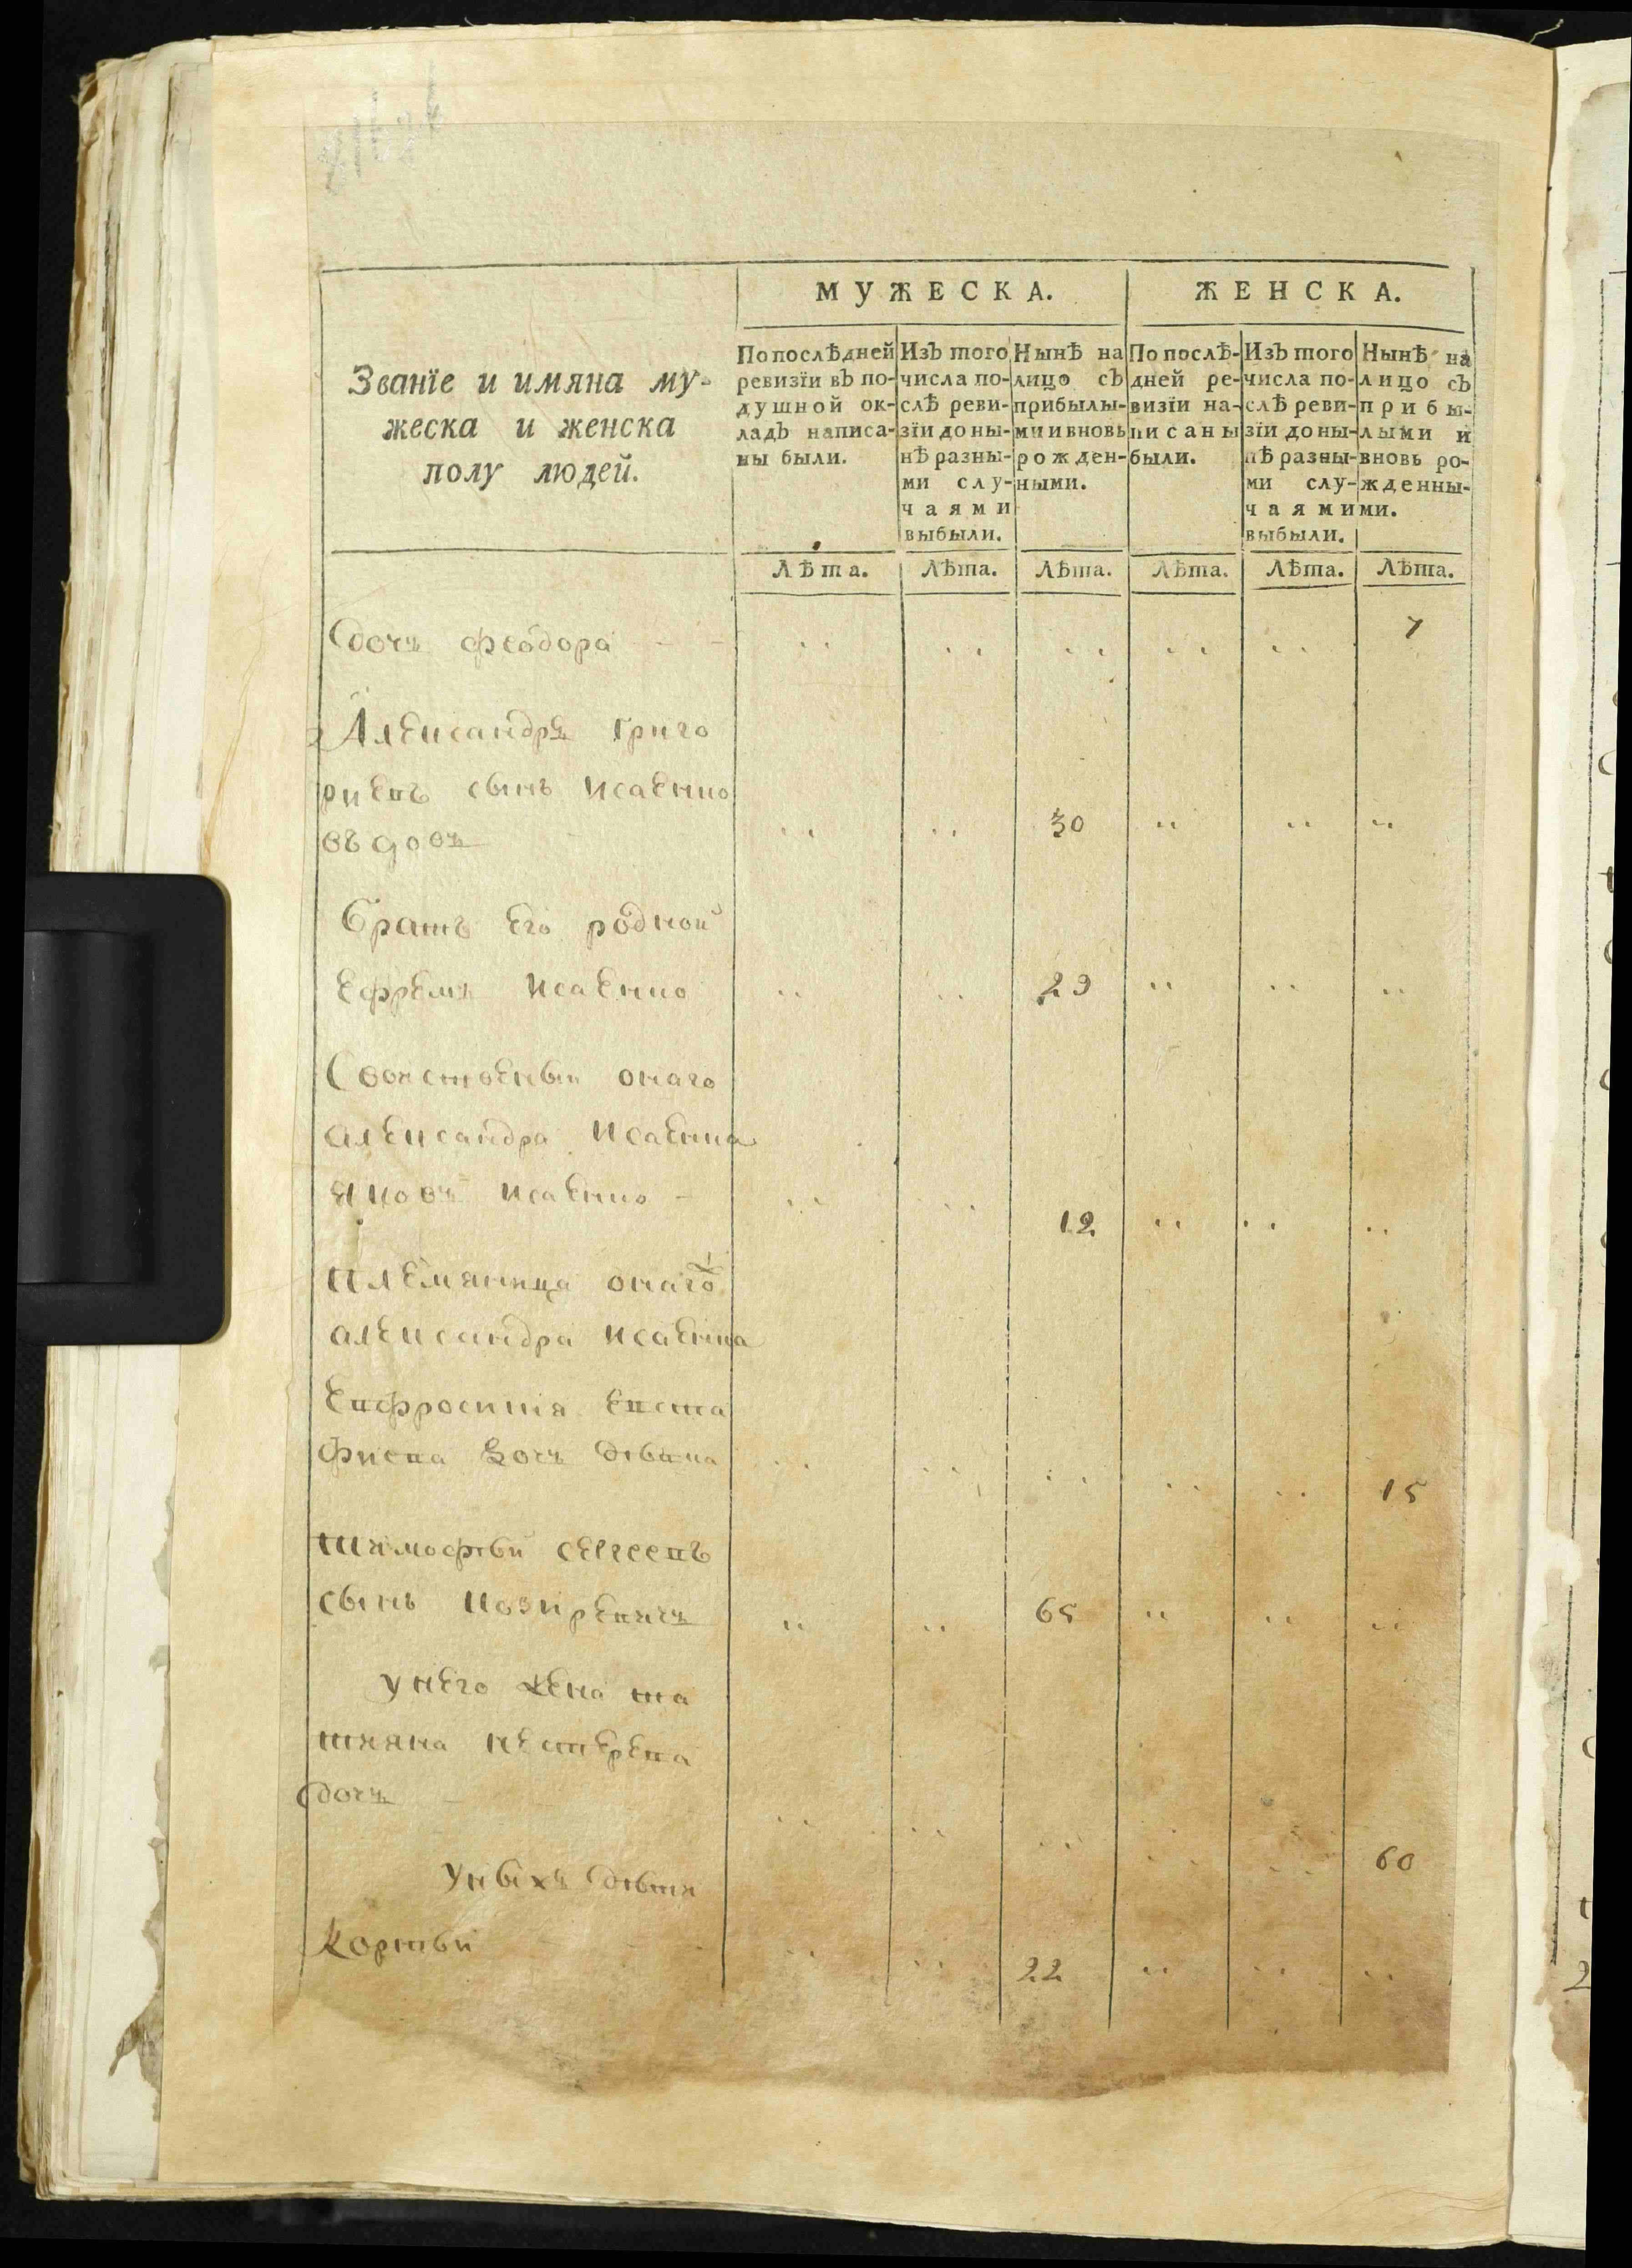 МУЖЕСКА. ЖЕНСКА.
Званїе и имяна му-
жеска и женска
полу людей.
По послѣдней
ревизїи въ по-
душной ок-
ладъ написа-
ны были.
Изъ того
числа по-
слѣ реви-
зїи до ны-
нѣ разны-
ми слу-
чаями
выбыли.
Нынѣ на
лицо съ
прибылы-
ми и вновь
рожден-
ными.
По послѣ-
дней ре-
визїи на-
писаны
были.
Изъ того
числа по-
слѣ реви-
зїи до ны-
нѣ разны-
ми слу-
чаями
выбыли.
Нынѣ на
лицо съ
прибы-
лыми и
вновь ро-
жденны-
ми.
Лѣта. Лѣта. Лѣта. Лѣта. Лѣта. Лѣта.
дочъ феодора 7
Александръ Григо
риевъ сынъ Исаенко
въдовъ 30
братъ его родной
ефремъ Исаенко 29
Свойственый онаго
александра Исаенка
яковъ Исаенко 12
племяница онаго
александра исаенка
Евфросиния Евста
фиева дочъ дѣвка 15
тимофѣй сергеевъ
сынъ Козиревичъ 65
унего жена та
тияна нестерева
дочъ 60
Унѣхъ дѣти
Корнѣй 22